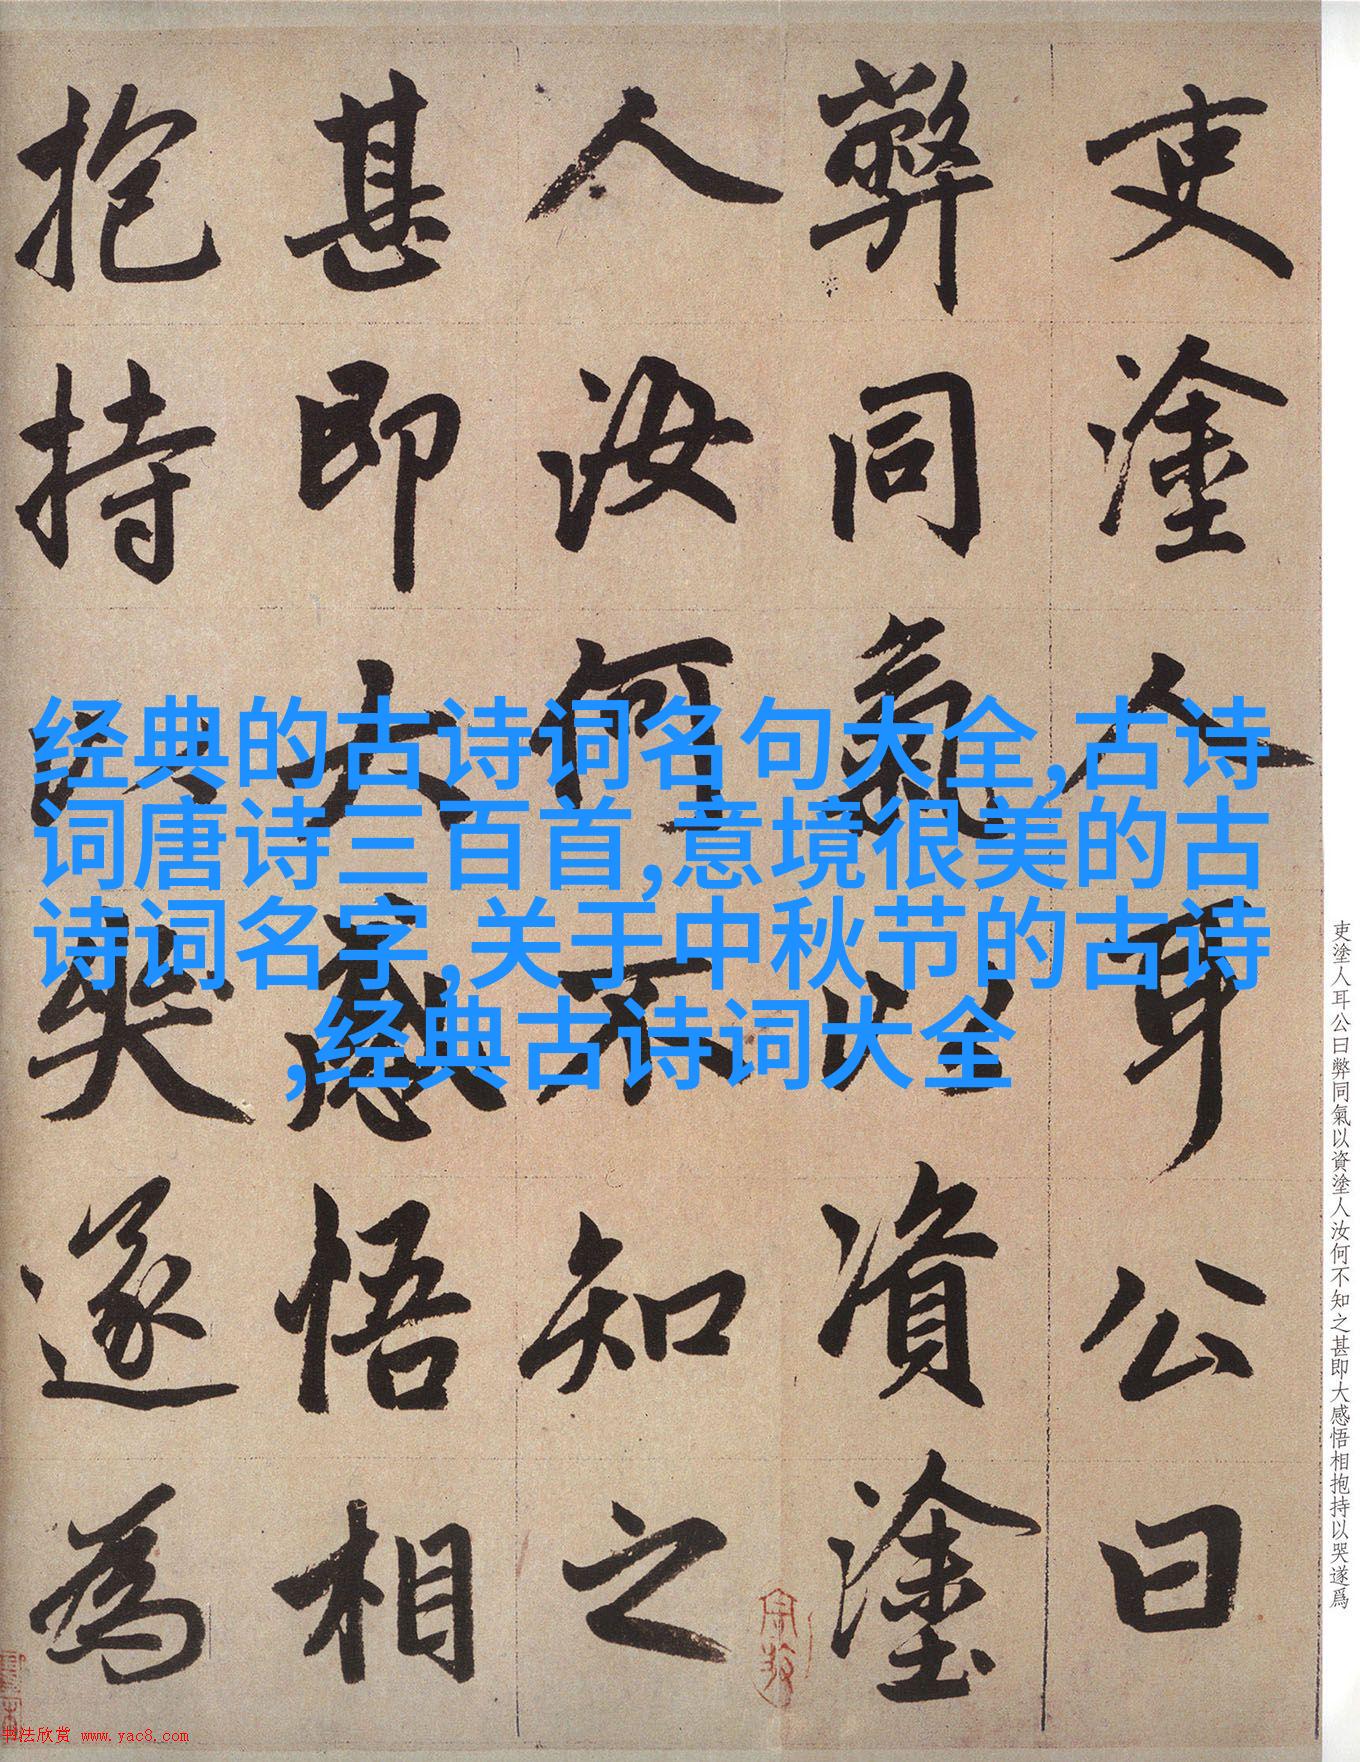 吏塗人耳公曰
弊同氣以資塗
人汝何不知之
甚即大感悟相
抱持以哭遂為
经典的古诗词名句大全,古诗
词唐诗三百首,意境很美的古
诗词名字,关于中秋节的古诗
,经典古诗词大全
吏塗人耳公曰弊同氣以資塗人汝何不知之甚即大感悟相抱持以哭遂爲
书法欣赏 www.yac8.com